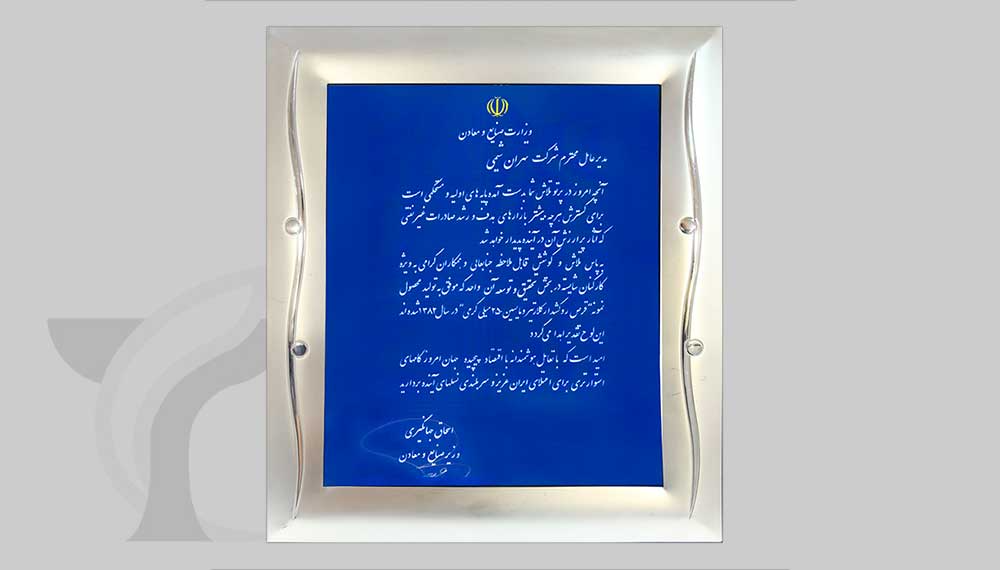 وزارت صنایع و معادن
مدیر عامل محترم شرکت تهران شیمی
آنچه امروز در پرتو تلاش شما بدست آمده پایه های اولیه و مستحکمی است
برای گسترش هرچه بیشتر بازارهای هدف و رشد صادرات غیر نفتی
که آثار پر ارزش آن در آینده پدیدار خواهد شد
به پاس تلاش و کوشش قابل ملاحظه جنابعالی و همکاران گرامی به ویژه
کارکنان شایسته در بخش تحقیق و توسعه آن واحد که موفق به تولید محصول
نمونه "قرص روکشدار کلاریترومایسین ۲۵۰ میلی گرمی" در سال ۱۳۸۲ شده اند
این لوح تقدیر اهدا می گردد
امید است که با تعامل هوشمندانه با اقتصاد پیچیده جهان امروز گامهای
استوارتری برای اعتلای ایران عزیز و سربلندی نسلهای آینده بردارید
اسحاق جهانگیری
وزیر صنایع و معادن